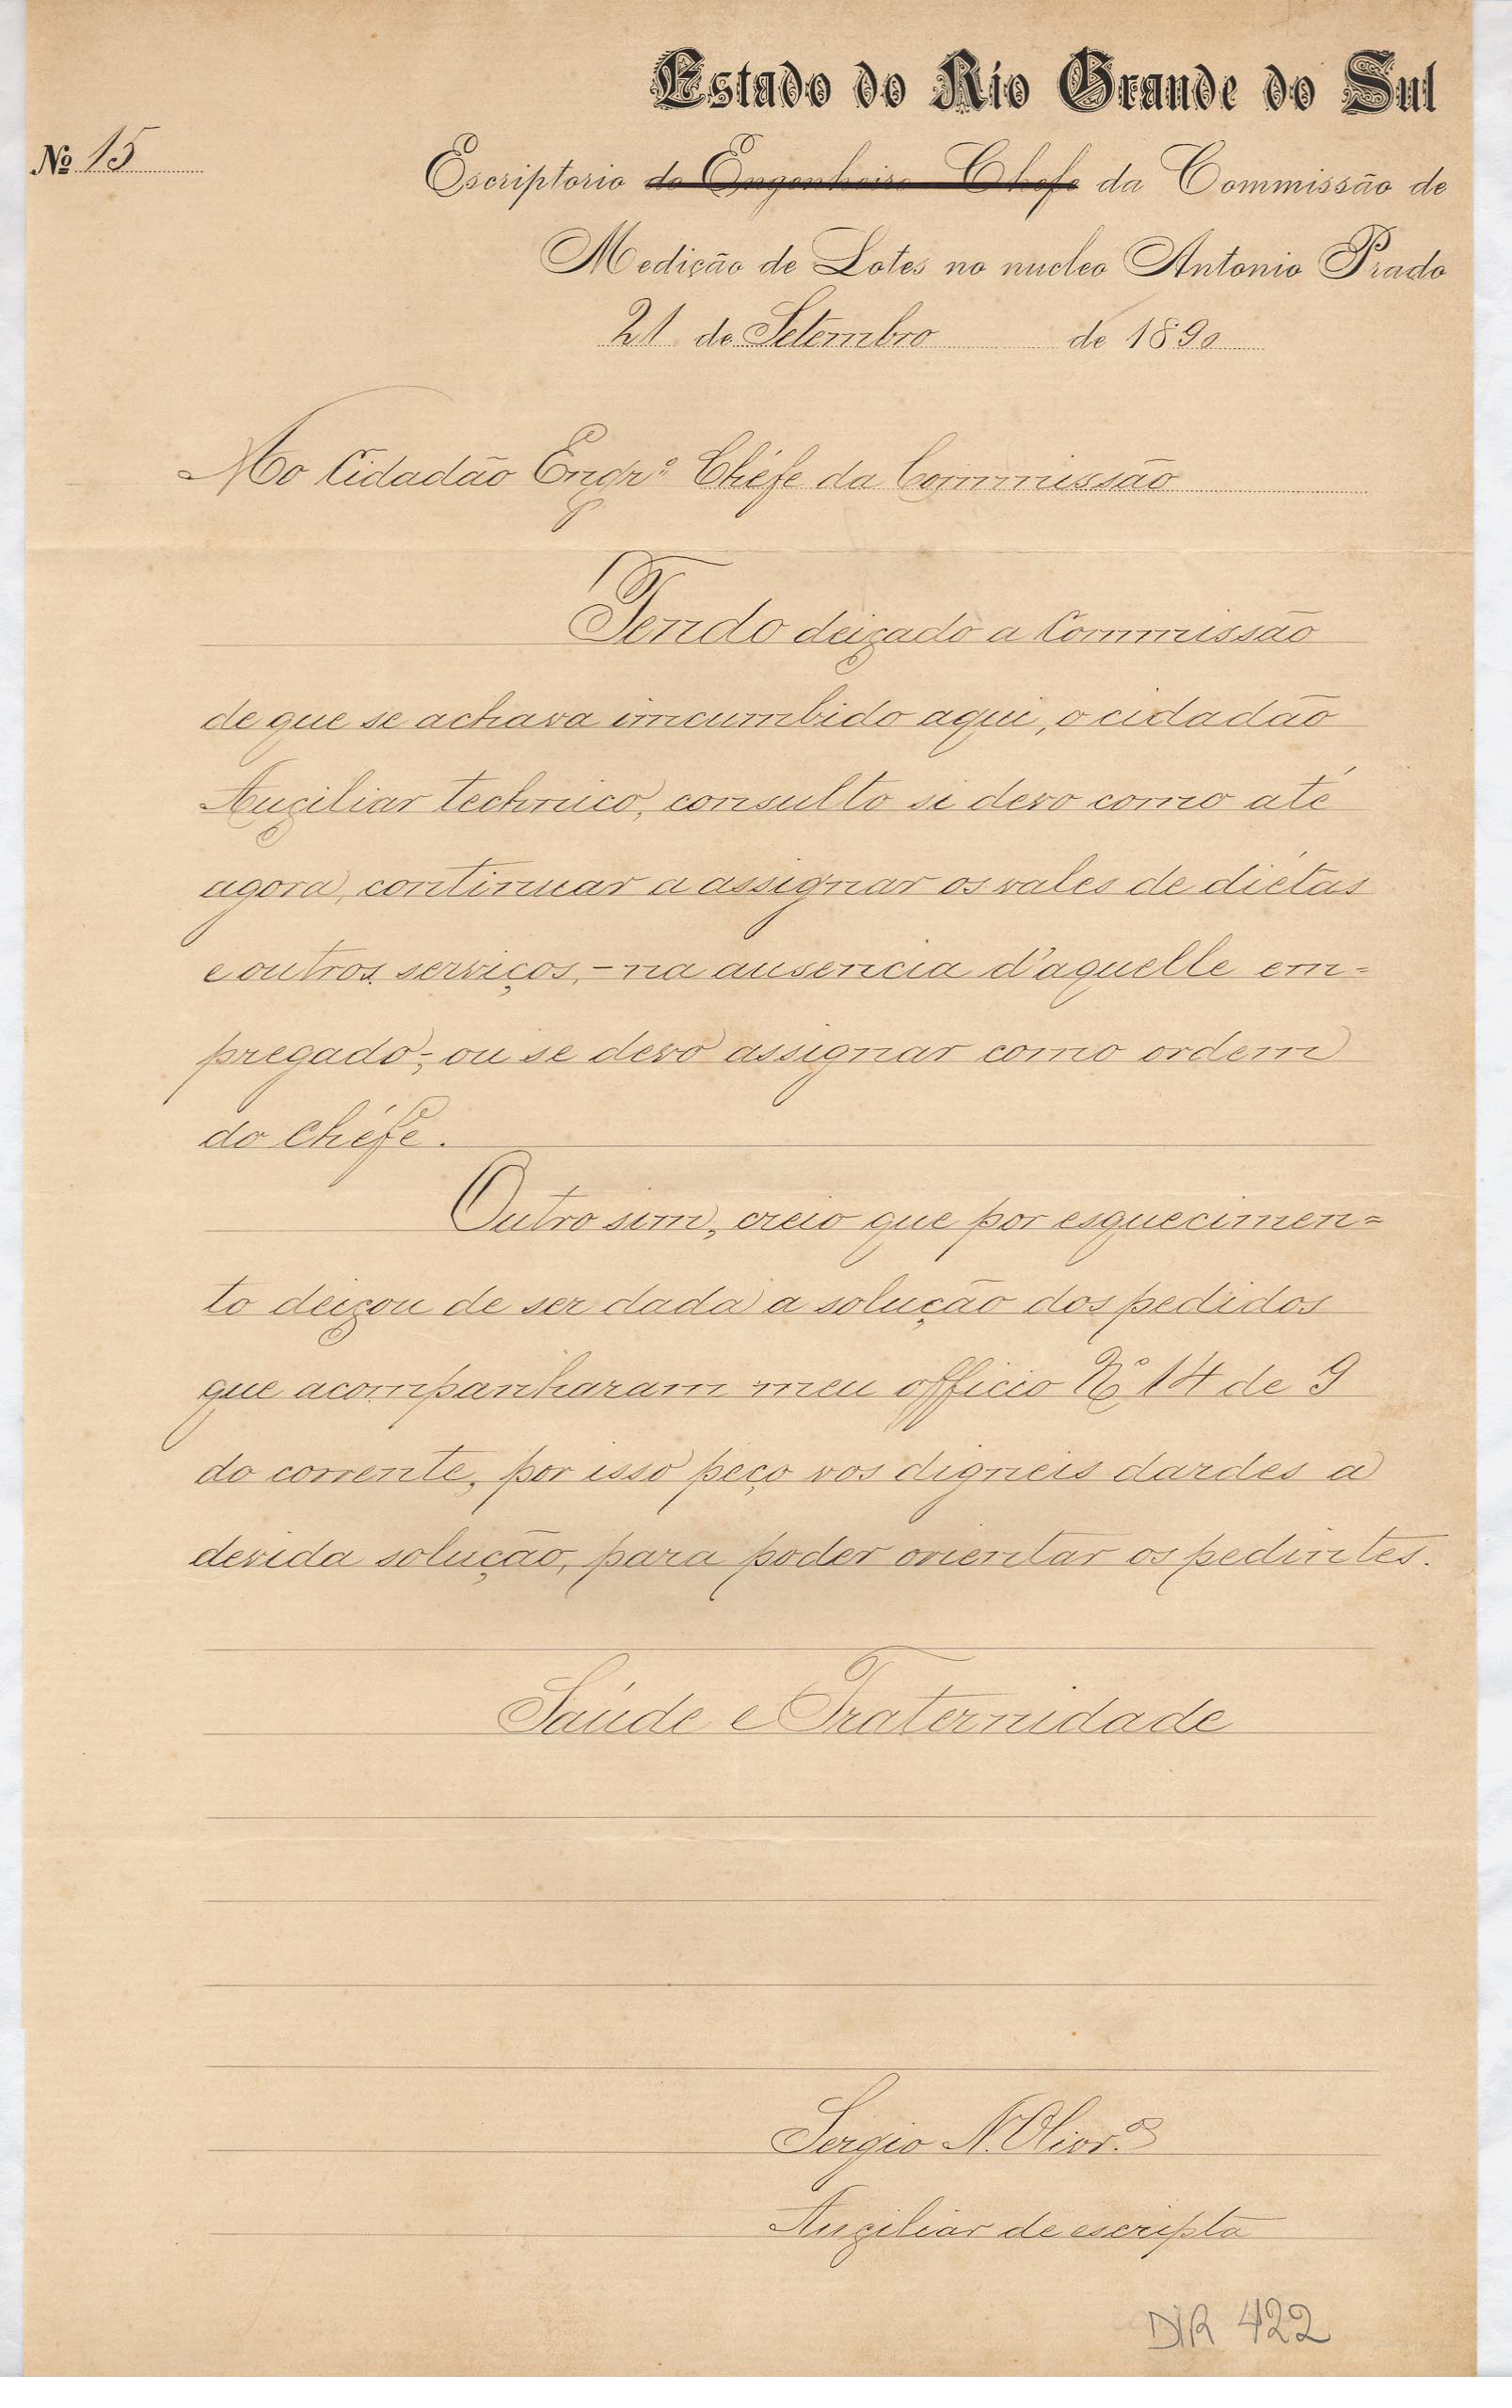 Estado do Rio Grande do Sul
Nº 15
Escriptorio do Engenheiro Chefe da Commissão de
Medição de Lotes no nucleo Antonio Prado
21 de Setembro de 1890
Ao Cidadão Engrº Chéfe da Commissão
Tendo deixado a Commissão
de que se achava imcumbido aqui, o cidadão
Auxiliar technico, consulto si devo como até
agora, continuar a assignar os vales de diétas
e outros serviços, - na ausencia d'aquelle em=
pregado-; ou se devo assignar como ordem
do Chéfe.
Outro sim, creio que por esquecimen=
to deixou de ser dada a solução dos pedidos
que acompanharam meu officio Nº 14 de 9
do corrente, por isso peço vos digneis dardes a
devida solução, para poder orientar os pedintes.
Saúde e Fraternidade
Sergio N. Olivrª
Auxiliar de escripta
DIR 422